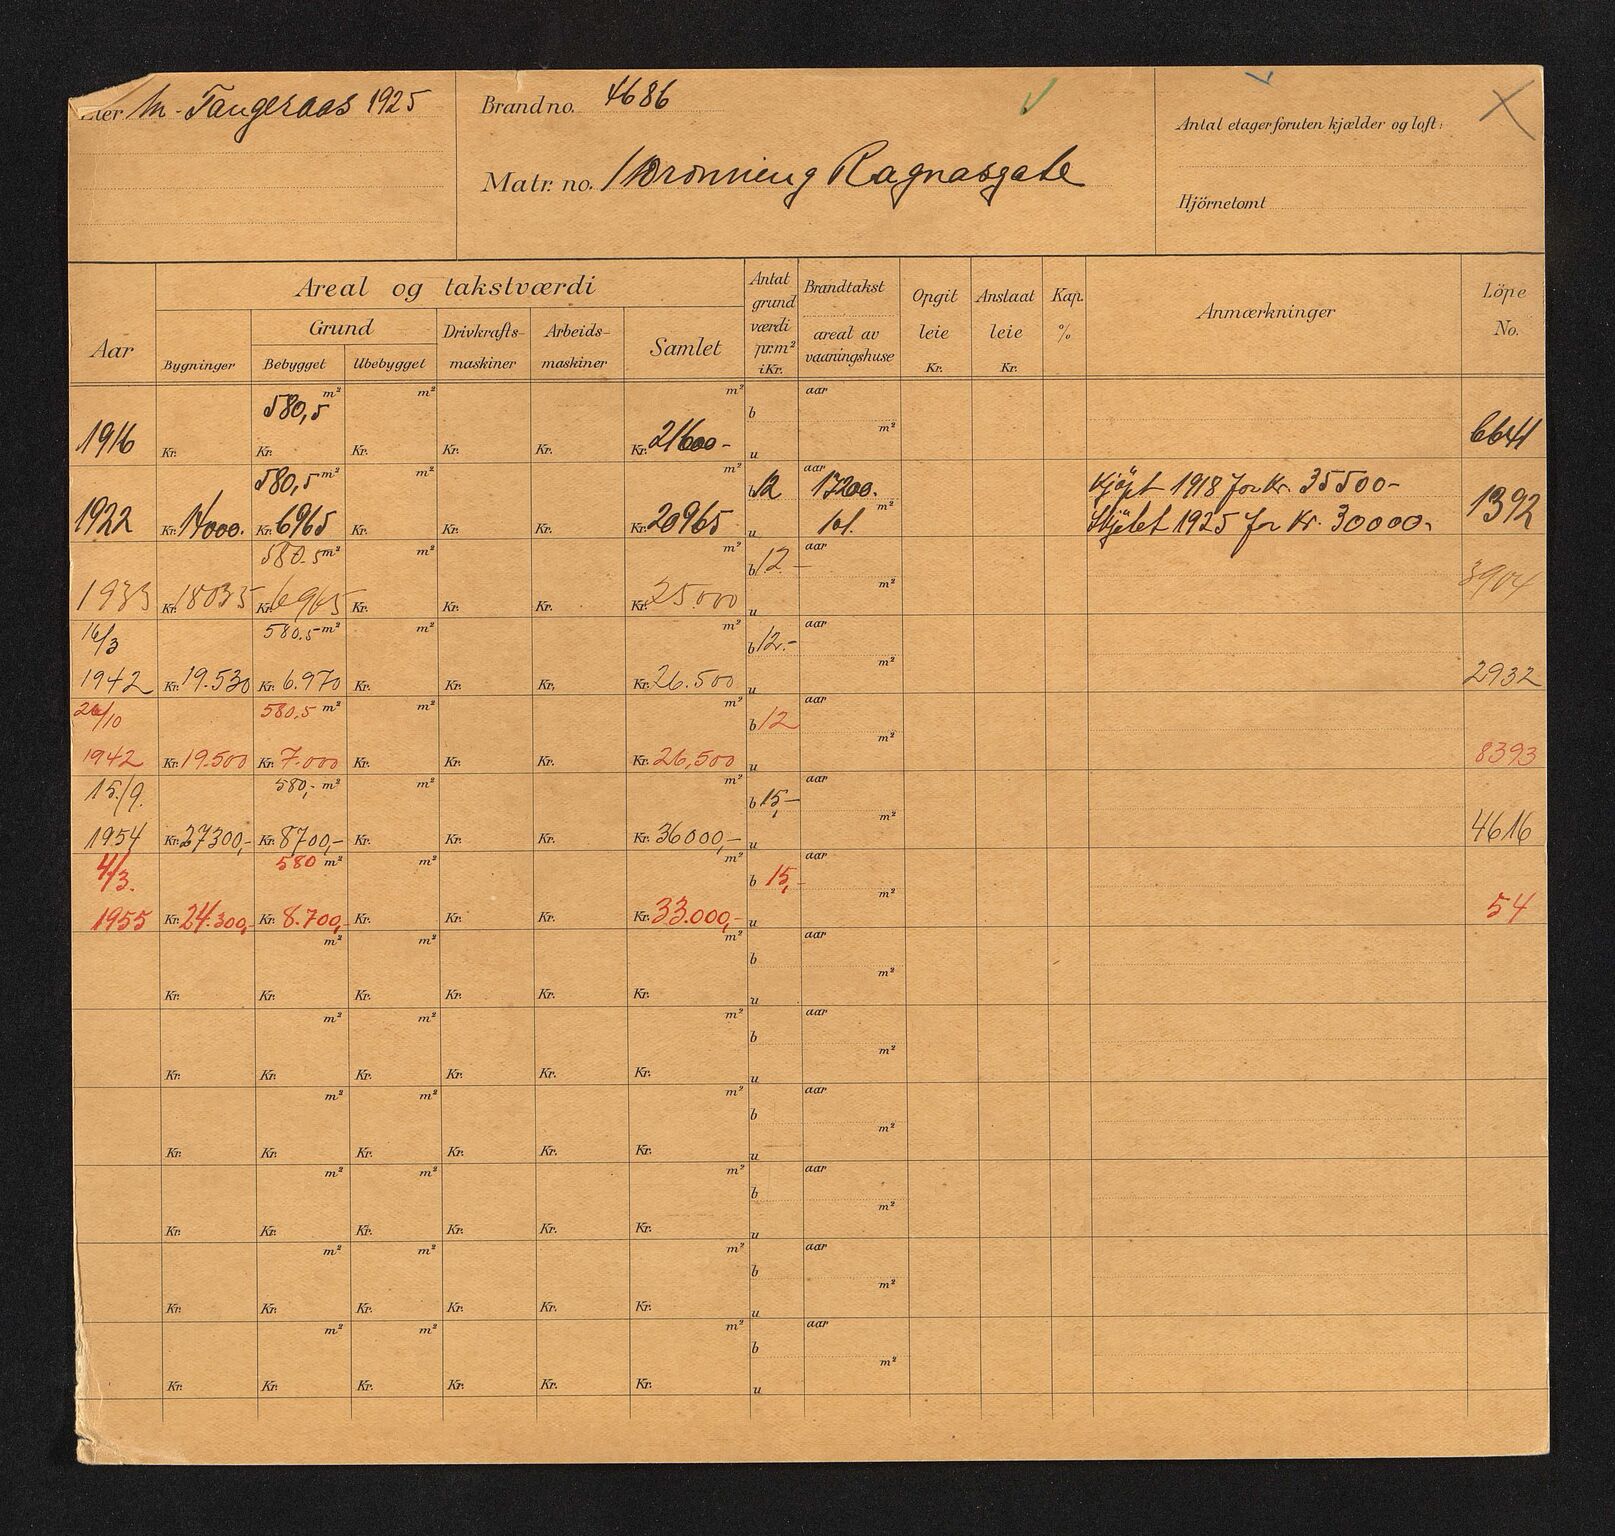 Eier M. Tangeraas 1925
Brand no. 4686
Matr. no. 1 Dronning Ragnasgate
Antal etager foruten kjælder og loft:
Hjörnetomt
Aar
Areal og takstværdi
Bygninger
Grund
Bebygget
Ubebygget
Drivkrafts-
maskiner
Arbeids-
maskiner
Samlet
Antat
grund
værdi
pr. m²
i Kr.
Brandtakst
areal av
vaaningshuse
Opgit
leie
Kr.
Anslaat
leie
Kr.
Kap.
%
Anmærkninger
Löpe
No.
580,5 m² m² m² b aar
m²
1916 Kr. Kr. Kr. Kr. Kr. Kr. 21600- u 6641
580,5 m² m² m² b 12 aar 17200. Kjöpt 1918 for Kr. 35500-
m²
1922 Kr. 14000. Kr. 6965 Kr. Kr. Kr. Kr. 20965 u 101. Skjötet 1925 for Kr. 30000- 1392
580.5 m² m² m² b 12.- aar
m²
1933 Kr. 18035 Kr. 6965 Kr. Kr. Kr. Kr. 25.000 u 3904
16/3 580.5 m² m² m² b 12.- aar
m²
1942 Kr. 19.530 Kr. 6.970 Kr. Kr. Kr. Kr. 26.500 u 2932
26/10 580.5 m² m² m² b 12 aar
m²
1942 Kr. 19.500 Kr. 7.000 Kr. Kr. Kr. Kr. 26,500 u 8393
15/9. 580,- m² m² m² b 15,- aar
m²
1954 Kr. 27300,- Kr. 8700,- Kr. Kr. Kr. Kr. 36000,- u 4616
4/3. 580 m² m² m² b 15,- aar
m²
1955 Kr. 24.300,- Kr. 8.700,- Kr. Kr. Kr. Kr. 33.000,- u 54
m² m² m² b aar
m²
Kr. Kr. Kr. Kr. Kr. Kr. u
m² m² m² b aar
m²
Kr. Kr. Kr. Kr. Kr. Kr. u
m² m² m² b aar
m²
Kr. Kr. Kr. Kr. Kr. Kr. u
m² m² m² b aar
m²
Kr. Kr. Kr. Kr. Kr. Kr. u
m² m² m² b aar
m²
Kr. Kr. Kr. Kr. Kr. Kr. u
m² m² m² b aar
m²
Kr. Kr. Kr. Kr. Kr. Kr. u